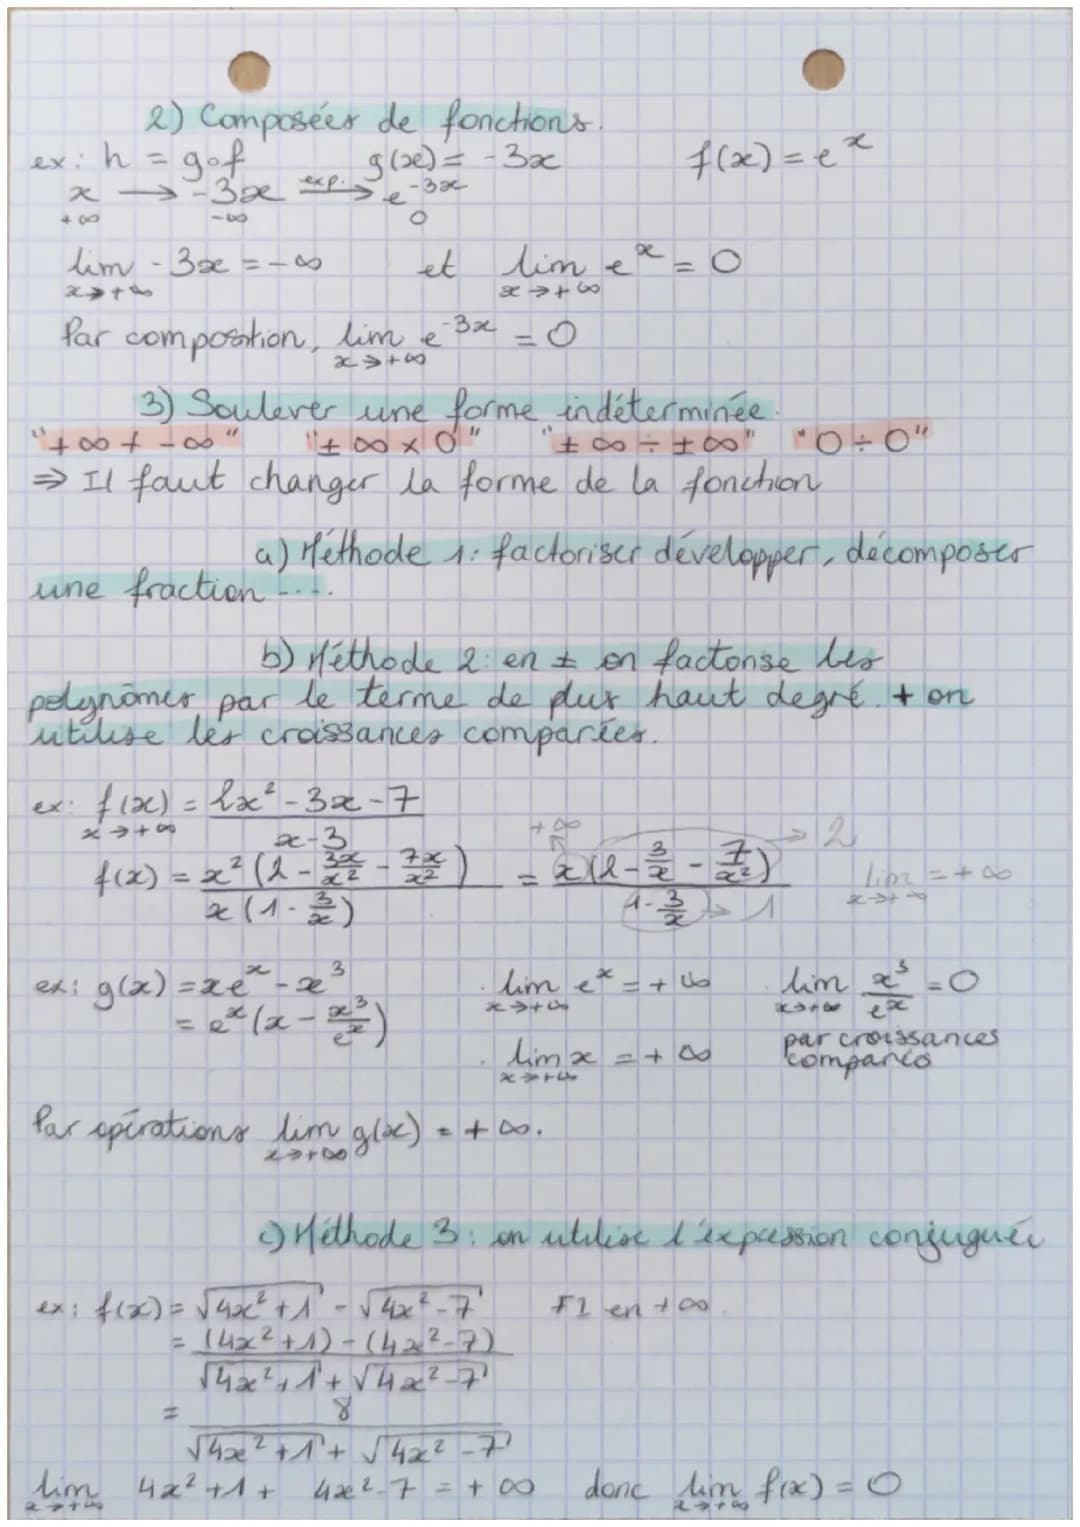 2) Composées de fonctions.
ex: h = g∘f   g(x) = -3x   f(x) = e^x
x → -3x exp.→ e^-3x
+∞   -∞   0
lim -3x = -∞   et   lim e^x = 0
x→+∞   x→+∞
Par composition, lim e^-3x = 0
x→+∞
3) Soulever une forme indéterminée.
"+∞ + -∞"   "±∞ × 0"   "±∞ ÷ ±∞"   "0 ÷ 0"
⇒ Il faut changer la forme de la fonction
a) Méthode 1: factoriser développer, décomposer
une fraction ....
b) Méthode 2: en ± on factorise les
polynômes par le terme de plus haut degré. + on
utilise les croissances comparées.
ex: f(x) = (2x² - 3x - 7)/(x - 3)
x→+∞
f(x) = x²(2 - 3x/x² - 7x/x²)/(x(1 - 3/x)) = x(2 - 3/x - 7/x²)/(1 - 3/x)   +∞   → 2   → 1   lim = +∞
x→+∞
ex: g(x) = xe^x - x³   . lim e^x = +∞   . lim x³/e^x = 0
x→+∞   x→+∞
= e^x(x - x³/e^x)   par croissances
comparés
. lim x = +∞
x→+∞
Par opérations lim g(x) = +∞.
x→+∞
c) Méthode 3: on utilise l'expression conjuguée
ex: f(x) = √(4x²+1) - √(4x²-7)   FI en +∞.
= ((4x²+1) - (4x²-7))/(√(4x²+1) + √(4x²-7))
= 8/(√(4x²+1) + √(4x²-7))
lim 4x²+1 + 4x²-7 = +∞   donc lim f(x) = 0
x→+∞   x→+∞